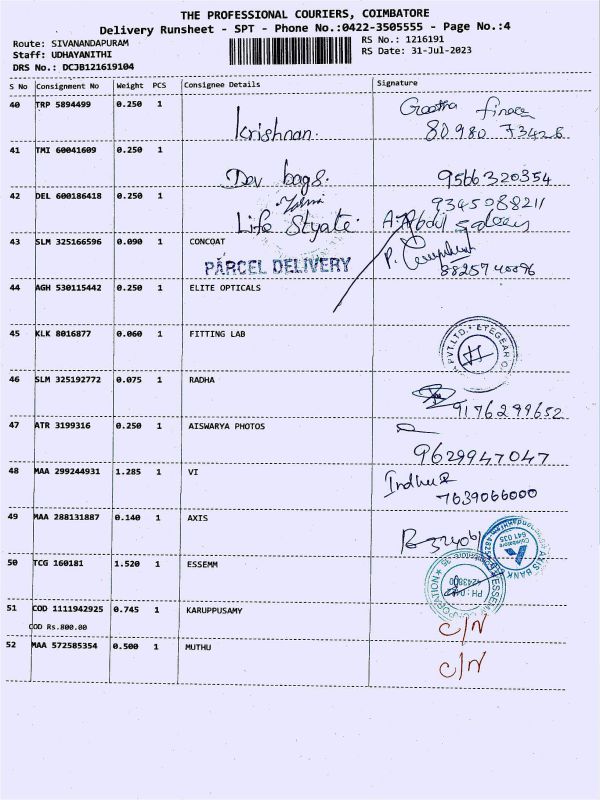 THE PROFESSIONAL COURIERS, COIMBATORE
Delivery Runsheet - SPT - Phone No.:0422-3505555 - Page No.:4
Route: SIVANANDAPURAM
RS No.: 1216191
Staff: UDHAYANITHI
RS Date: 31-Jul-2023
DRS No.: DCJB121619104
S No Consignment No Weight PCS Consignee Details Signature
40 TRP 5894499 0.250 1
Krishnan.
80980 73428
41 TMI 60041609 0.250 1
Dev bags.
9566320354
42 DEL 600186418 0.250 1
Life Styate
9345088211
A. Abdul
43 SLM 325166596 0.090 1 CONCOAT
PARCEL DELIVERY
44 AGH 530115442 0.250 1 ELITE OPTICALS
45 KLK 8016877 0.060 1 FITTING LAB
PVT.LTD. * EYEGEAR
46 SLM 325192772 0.075 1 RADHA
9176299652
47 ATR 3199316 0.250 1 AISWARYA PHOTOS
9629947047
48 MAA 299244931 1.285 1 VI
Indhu
7639066000
49 MAA 288131887 0.140 1 AXIS
AXIS BANK
Coimbatore
641 035
50 TCG 160181 1.520 1 ESSEMM
ESSEMM CORPORATION
4243800
51 COD 1111942925 0.745 1 KARUPPUSAMY
COD Rs.800.00
C/N
52 MAA 572585354 0.500 1 MUTHU
C/N